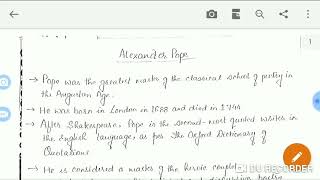 1
Alexander Pope
→ Pope was the greatest master of the classical school of poetry in
the Augustan Age.
→ He was born in London in 1688 and died in 1744
→ After Shakespeare, Pope is the second-most quoted writer in
the English language, as per The Oxford Dictionary of
Quotations
→ He is considered a master of the heroic couplet
DU RECORDER